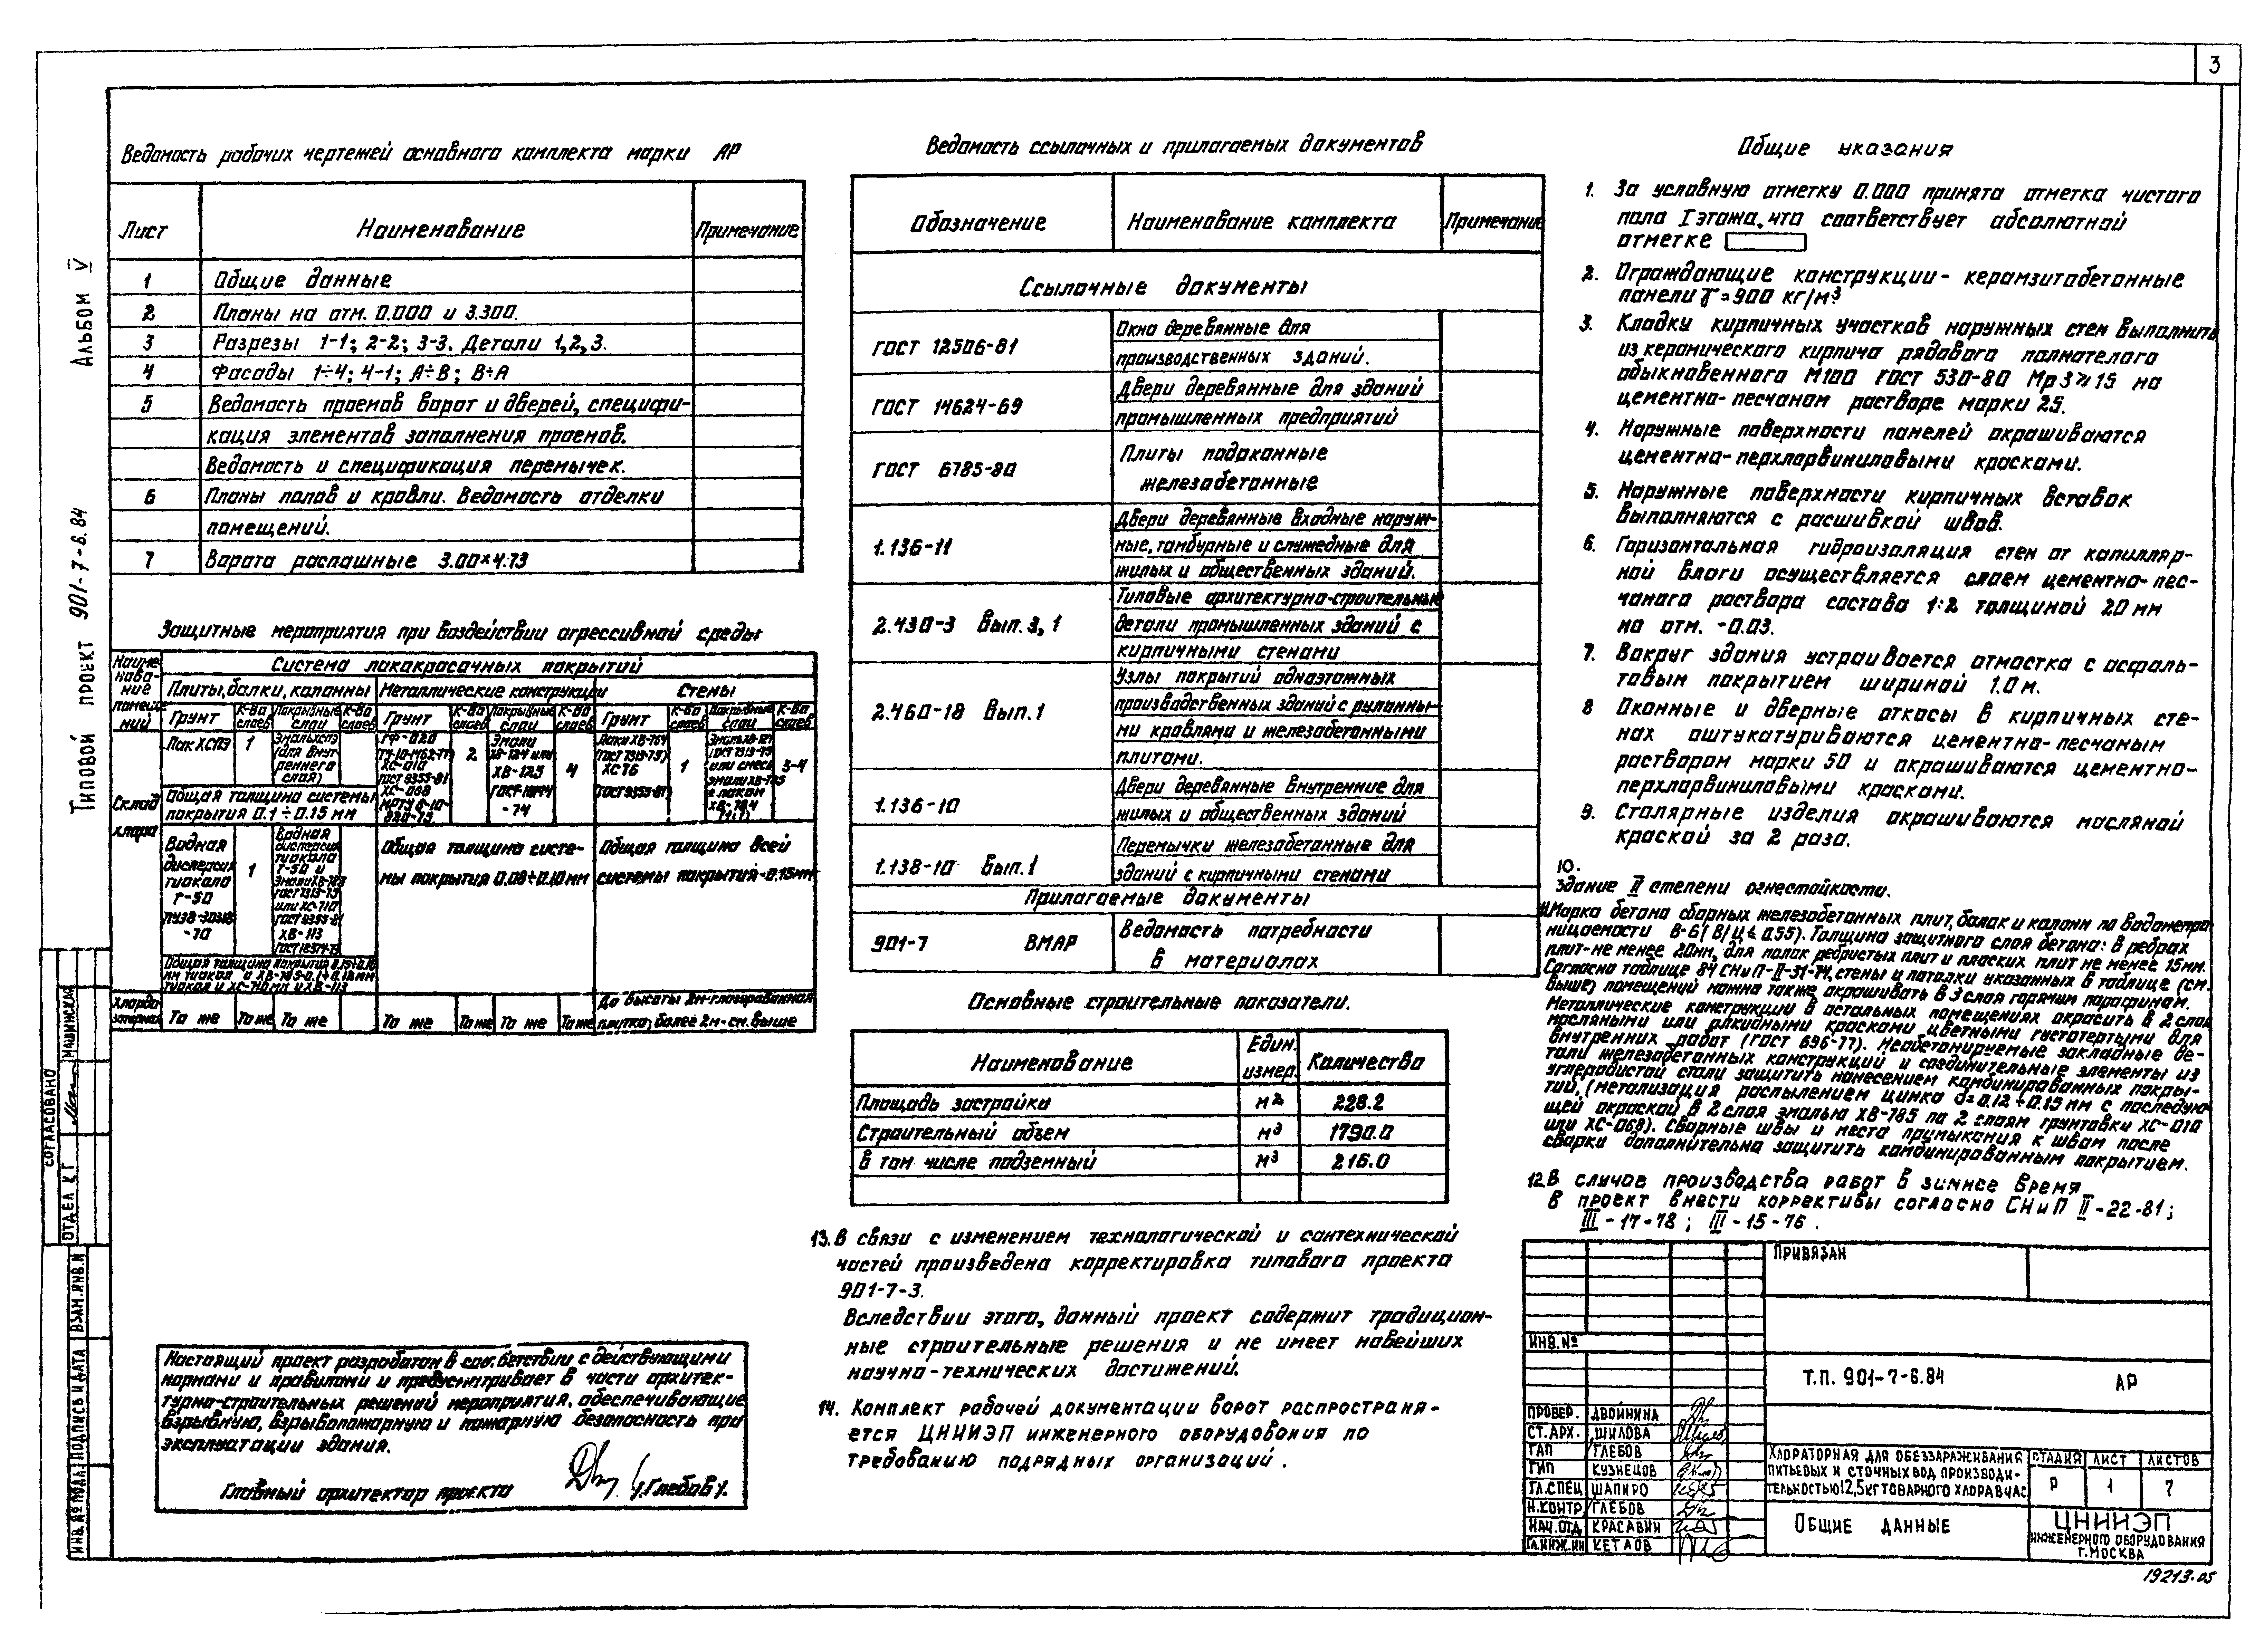 3
Альбом V
Типовой проект 901-7-6.84
Ведомость рабочих чертежей основного комплекта марки АР
Лист Наименование Примечание
1 Общие данные
2 Планы на отм. 0.000 и 3.300.
3 Разрезы 1-1; 2-2; 3-3. Детали 1,2,3.
4 Фасады 1÷4; 4-1; А÷В; В÷А
5 Ведомость проемов ворот и дверей, специфи-
кация элементов заполнения проемов.
Ведомость и спецификация перемычек.
6 Планы полов и кровли. Ведомость отделки
помещений.
7 Ворота распашные 3.00×4.73
Защитные мероприятия при воздействии агрессивной среды
Наиме
нова-
ние
помеще
ний
Система лакокрасочных покрытий
Плиты, балки, колонны Металлические конструкции Стены
Грунт К-во слоев Покрывные слои К-во слоев Грунт К-во слоев Покрывные слои К-во слоев Грунт К-во слоев Покрывные слои К-во слоев
Склад
хлора
Лак ХСПЭ 1 Эмаль ХСПЭ
(для внут-
реннего
слоя)
ГФ-020
ХС-010
ГОСТ 9355-81
ХС-068
2
Эмали
ХВ-124 или
ХВ-125
ГОСТ 10144
-74
4
Лаки ХВ-784
ГОСТ 7313-75)
ХС 76
ГОСТ 9355-81)
1
Эмаль ХВ-124
или смесь
эмали ХВ-785
с лаком
ХВ-784
(1:1)
3-4
Общая толщина системы
покрытия 0.1÷0.15 мм
Водная
дисперсия
тиокола
Т-50
-70
1
Водная
дисперсия
тиокола
Т-50 и
эмали ХВ-785
ГОСТ 7313-75
или ХС-710
ГОСТ 9355-81
ХВ-113
Общая толщина систе-
мы покрытия 0.08÷0.10 мм
Общая толщина всей
системы покрытия -0.15мм
Общая толщина покрытия
Хлордо-
заторная То же То же То же То же То же То же То же
До высоты 2м-глазированная
плитка, более 2м-см. выше
Настоящий проект разработан в соответствии с действующими
нормами и правилами и предусматривает в части архитек-
турно-строительных решений мероприятия, обеспечивающие
взрывную, взрывопожарную и пожарную безопасность при
эксплуатации здания.
Главный архитектор проекта /Глебов/.
Ведомость ссылочных и прилагаемых документов
Обозначение Наименование комплекта Примечание
Ссылочные документы
ГОСТ 12506-81 Окна деревянные для
производственных зданий.
ГОСТ 14624-69 Двери деревянные для зданий
промышленных предприятий
ГОСТ 6785-80 Плиты подоконные
железобетонные
1.136-11 Двери деревянные входные наруж-
ные, тамбурные и служебные для
жилых и общественных зданий.
2.430-3 Вып.3,1 Типовые архитектурно-строительные
детали промышленных зданий с
кирпичными стенами
2.460-18 Вып.1 Узлы покрытий одноэтажных
производственных зданий с рулонны-
ми кровлями и железобетонными
плитами.
1.136-10 Двери деревянные внутренние для
жилых и общественных зданий
1.138-10 Вып.1 Перемычки железобетонные для
зданий с кирпичными стенами
Прилагаемые документы
901-7 ВМАР Ведомость потребности
в материалах
Основные строительные показатели.
Наименование Един. измер. Количество
Площадь застройки м2 228.2
Строительный объем м3 1790.0
в том числе подземный м3 216.0
13. В связи с изменением технологической и сантехнической
частей произведена корректировка типового проекта
901-7-3.
Вследствии этого, данный проект содержит традицион-
ные строительные решения и не имеет новейших
научно-технических достижений.
14. Комплект рабочей документации ворот распространя-
ется ЦНИИЭП инженерного оборудования по
требованию подрядных организаций.
Общие указания
1. За условную отметку 0.000 принята отметка чистого
пола I этажа, что соответствует абсолютной
отметке
2. Ограждающие конструкции - керамзитобетонные
панели γ=900 кг/м3
3. Кладку кирпичных участков наружных стен выполнить
из керамического кирпича рядового полнотелого
обыкновенного М100 ГОСТ 530-80 Мрз≥15 на
цементно-песчаном растворе марки 25.
4. Наружные поверхности панелей окрашиваются
цементно-перхлорвиниловыми красками.
5. Наружные поверхности кирпичных вставок
выполняются с расшивкой швов.
6. Горизонтальная гидроизоляция стен от капилляр-
ной влаги осуществляется слоем цементно-пес-
чаного раствора состава 1:2 толщиной 20мм
на отм. -0.03.
7. Вокруг здания устраивается отмостка с асфаль-
товым покрытием шириной 1.0м.
8 Оконные и дверные откосы в кирпичных сте-
нах оштукатуриваются цементно-песчаным
раствором марки 50 и окрашиваются цементно-
перхлорвиниловыми красками.
9. Столярные изделия окрашиваются масляной
краской за 2 раза.
10.
Здание II степени огнестойкости.
11.Марка бетона сборных железобетонных плит, балок и колонн по водонепро-
ницаемости В-6 (В/Ц ≤ 0.55). Толщина защитного слоя бетона: в ребрах
плит-не менее 20мм, для полок ребристых плит и плоских плит не менее 15мм.
Согласно таблице 84 СНиП-II-31-74, стены и потолки указанных в таблице (см.
выше) помещений можно также окрашивать в 3 слоя горячим парафином.
Металлические конструкции в остальных помещениях окрасить в 2 слоя
масляными или алкидными красками цветными густотертыми для
внутренних работ (ГОСТ 695-77). Необетонируемые закладные де-
тали железобетонных конструкций и соединительные элементы из
углеродистой стали защитить нанесением комбинированных покры-
тий, (метализация распылением цинка δ=0.12÷0.15 мм с последую-
щей окраской в 2 слоя эмалью ХВ-785 по 2 слоям грунтовки ХС-010
или ХС-068). Сварные швы и места примыкания к швам после
сварки дополнительно защитить комбинированным покрытием.
12.В случае производства работ в зимнее время
в проект внести коррективы согласно СНиП II-22-81;
III-17-78; III-15-76.
Привязан
Инв.№
Т.П. 901-7-6.84 АР
Провер. Двойнина
Ст.арх. Шилова
ГАП Глебов
ГИП Кузнецов
Гл.спец Шапиро
Н.контр Глебов
Нач.отд. Красавин
Гл.инж.ин Кетаов
Хлораторная для обеззараживания
питьевых и сточных вод производи-
тельностью 12,5 кг товарного хлора в час
Стадия Лист Листов
Р 1 7
Общие данные
ЦНИИЭП
инженерного оборудования
г.Москва
19213-05
Согласовано
Отдел КГ Машинская
Инв.№ подл. Подпись и дата Взам.инв.№